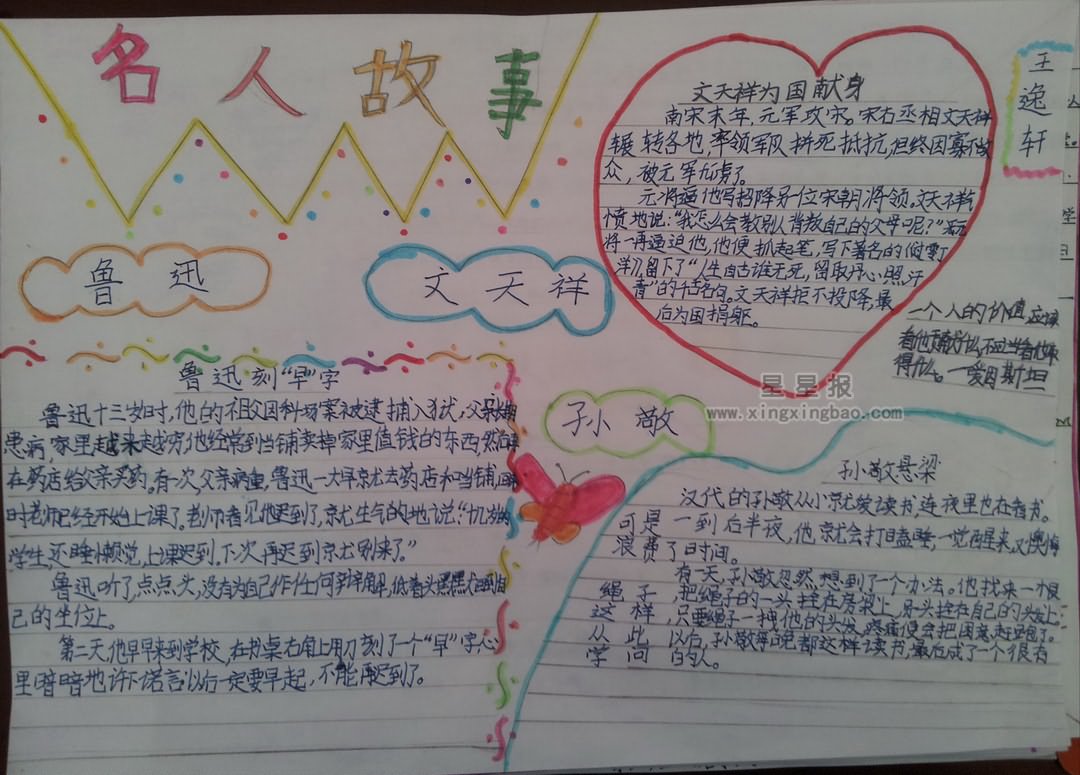 名人故事
王逸轩
文天祥为国献身
南宋末年,元军攻宋。宋右丞相文天祥
辗转各地,率领军队拼死抵抗,但终因寡不敌
众,被元军俘虏了。
元将逼他写招降另一位宋朝将领,文天祥气
愤地说:“我怎么会教别人背叛自己的父母呢?”元
将一再逼迫他,他便抓起笔,写下著名的《过零丁
洋》,留下了“人生自古谁无死,留取丹心照汗
青”的千古名句。文天祥拒不投降,最
后为国捐躯。
鲁迅
文天祥
一个人的价值,应该
看他贡献什么,不应当看他取
得什么。一爱因斯坦
鲁迅刻“早”字
鲁迅十三岁时,他的祖父因科场案被逮捕入狱,父亲长期
患病,家里越来越穷,他经常到当铺卖掉家里值钱的东西,然后
在药店给父亲买药。有一次,父亲病重,鲁迅一大早就去药店和当铺,回来
时老师已经开始上课了。老师看见他迟到了,就生气的地说:“十几岁的
学生,还睡懒觉,上课迟到。下次再迟到就别来了。”
鲁迅听了,点点头,没有为自己作任何辩解,低着头默默回到自
己的坐位上。
第二天,他早早来到学校,在书桌右角上用刀刻了一个“早”字,心
里暗暗地许下诺言:以后一定要早起,不能再迟到了。
星星报
www.xingxingbao.com
孙敬
孙敬悬梁
汉代的孙敬从小就爱读书,连夜里也在看书。
可是一到后半夜,他就会打瞌睡,一觉醒来,又懊悔
浪费了时间。
有一天,孙敬忽然想到了一个办法。他找来一个根
绳子,把绳子的一头拴在房梁上,另一头拴在自己的头发上。
这样,只要绳子一拽他的头发,疼痛便会把困意赶跑了。
从此以后,孙敬每晚都这样读书,最后成了一个很有
学问的人。